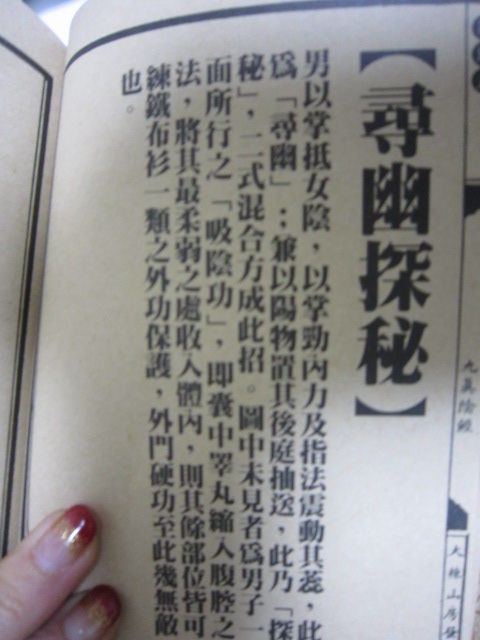 【尋幽探秘】
男以掌抵女陰，以掌勁內力及指法震動其蕊，此
爲「尋幽」；兼以陽物置其後庭抽送，此乃「探
秘」，二式混合方成此招。圖中未見者爲男子一
面所行之「吸陰功」，即囊中睪丸縮入腹腔之
法，將其最柔弱之處收入體內，則其餘部位皆可
練鐵布衫一類之外功保護，外門硬功至此幾無敵
也。
九真陰經